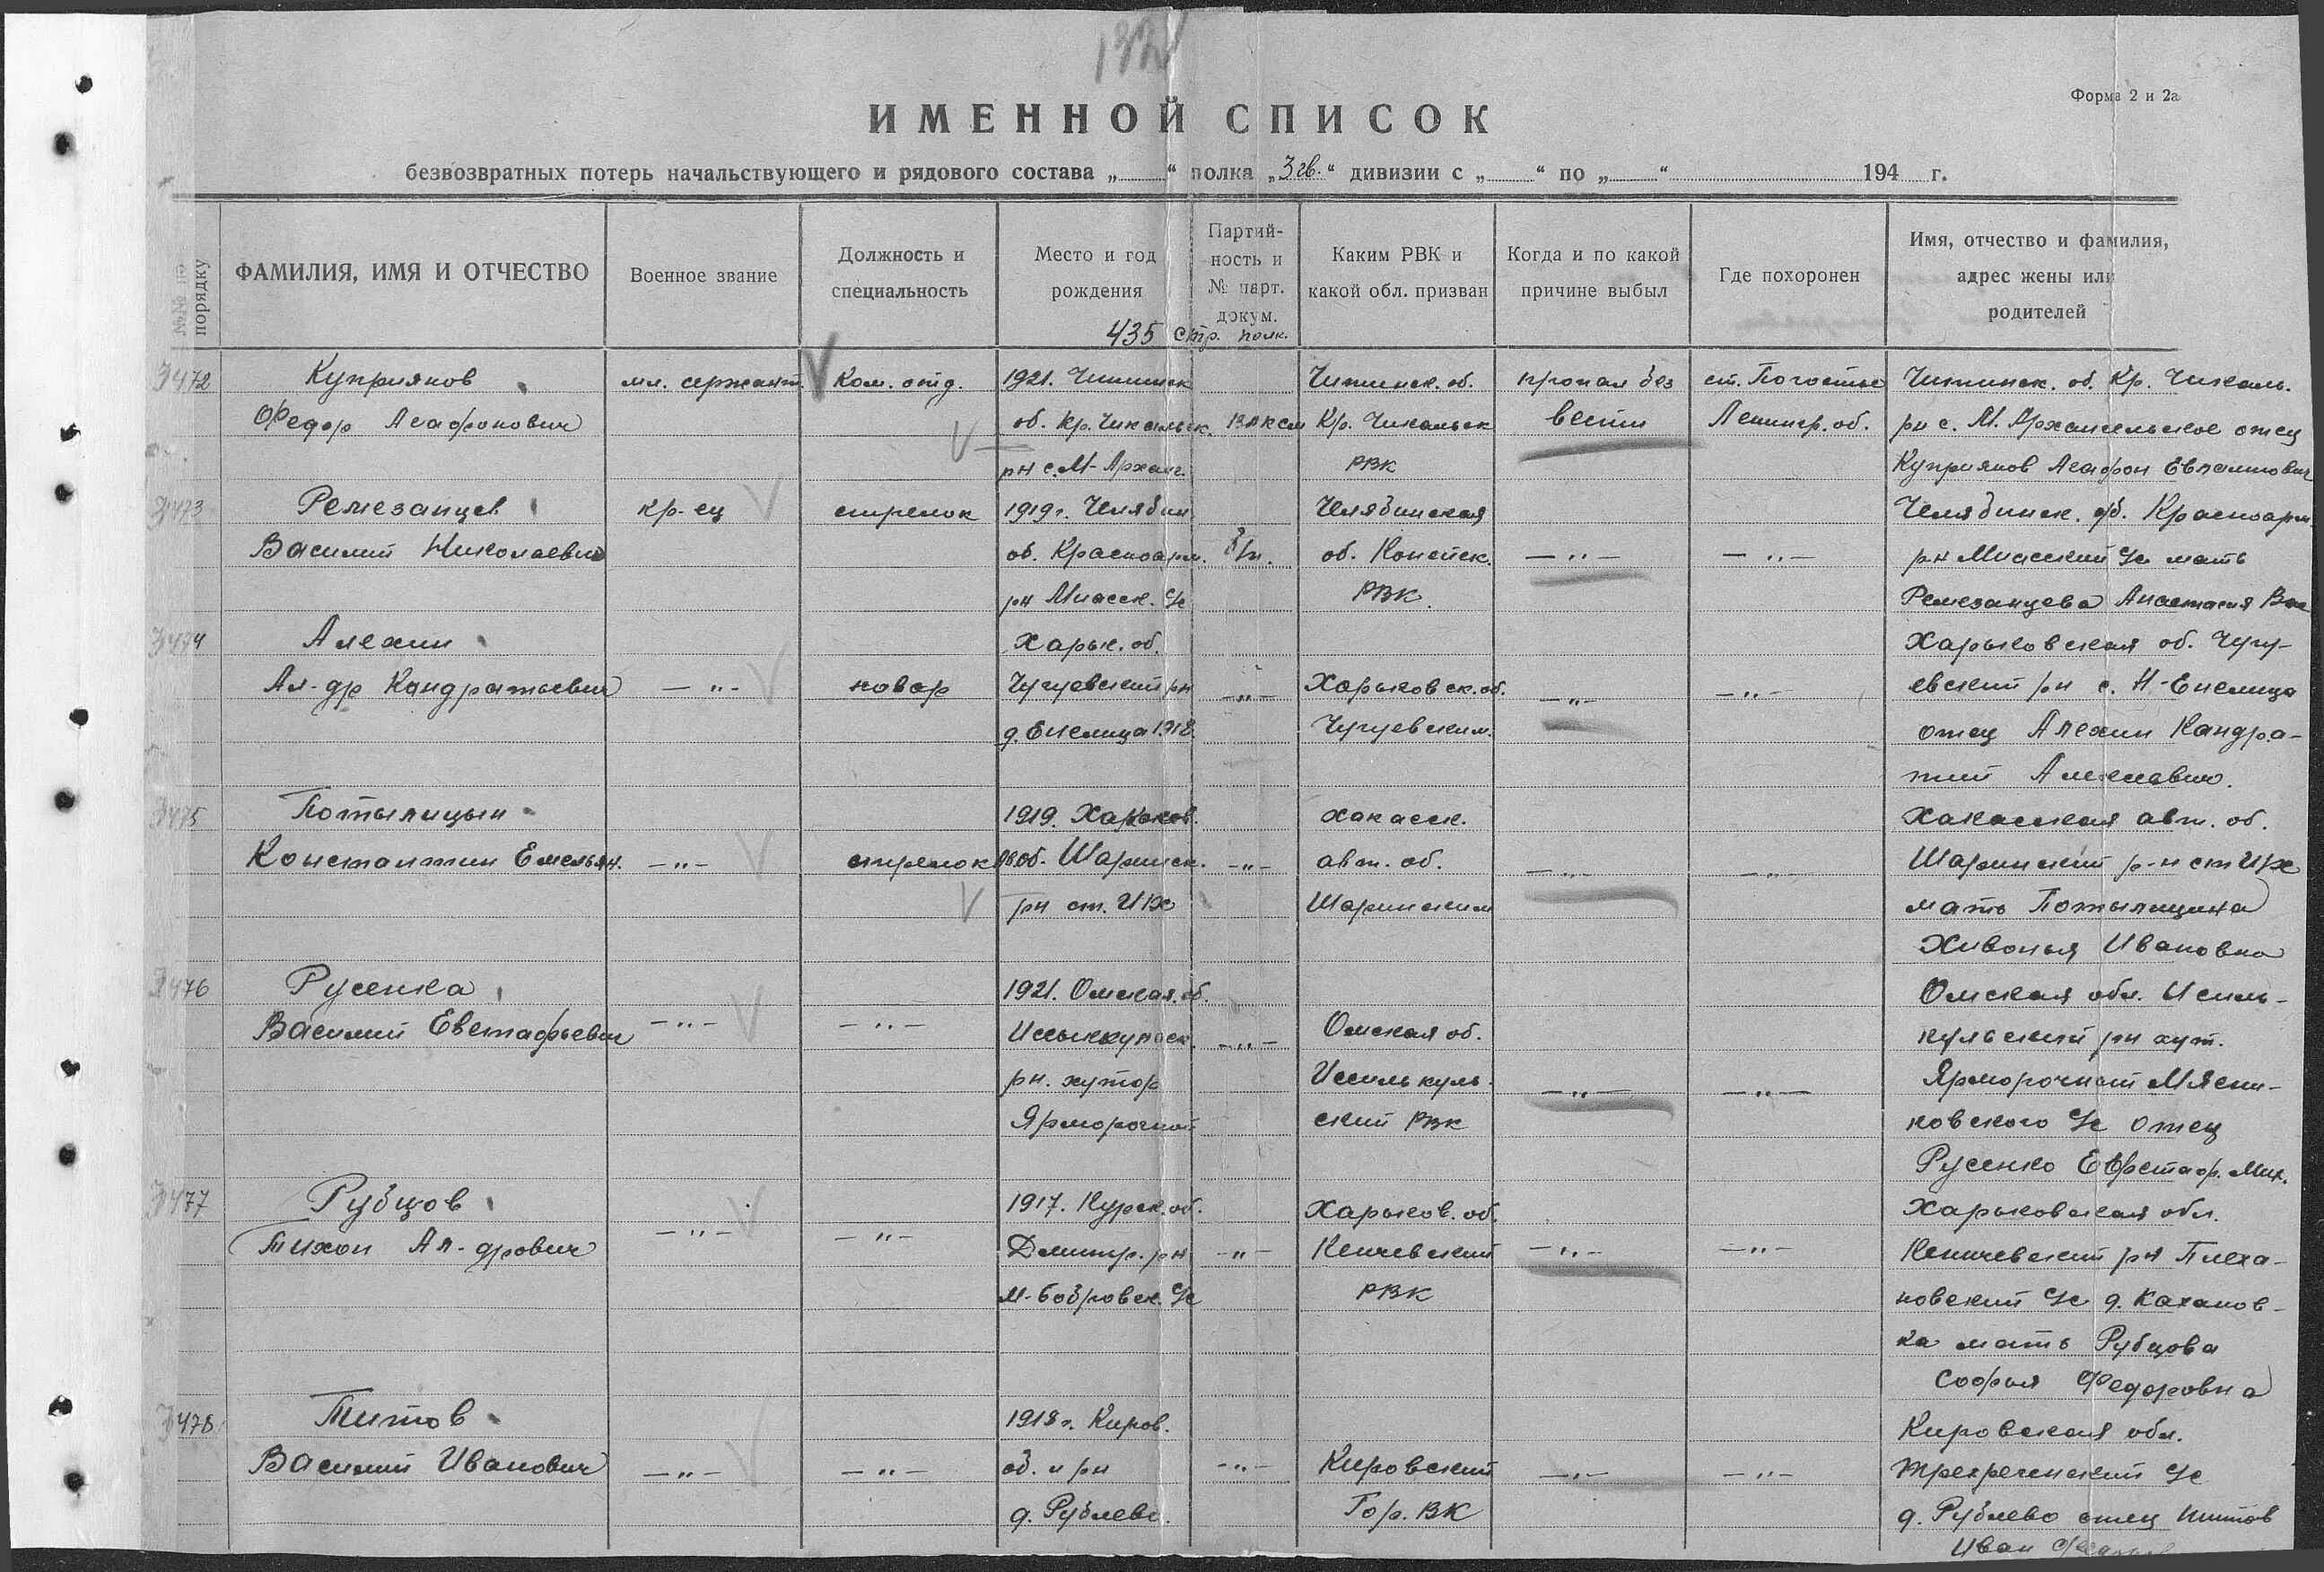 132
Форма 2 и 2а
ИМЕННОЙ СПИСОК
безвозвратных потерь начальствующего и рядового состава „ “ полка „3 гв.“ дивизии с „ “ по „ “ 194 г.
№№ по порядку
ФАМИЛИЯ, ИМЯ И ОТЧЕСТВО
Военное звание
Должность и специальность
Место и год рождения
Партийность и № парт. докум.
Каким РВК и какой обл. призван
Когда и по какой причине выбыл
Где похоронен
Имя, отчество и фамилия, адрес жены или родителей
435 стр. полк.
3472 Куприянов мл. сержант. Ком. отд. 1921. Читинск Читинск. об. пропал без ст. Погостье Читинск. об. Кр. Чикань.
Федор Агафонович об. Кр. Чикальск. ВЛКСМ Кр. Чикальск вести Ленингр. об. рн с. М. Архангельское отец
рн с. М-Арханг. РВК Куприянов Агафон
3473 Ремезанцев кр-ец стрелок 1919 г. Челябин Челябинская Челябинск. об. Красноарм
Василий Николаевич об. Красноарм. б/п. об. Копейск. —„— —„— рн Миасский с/с мать
рн Миасск. с/с РВК. Ремезанцева Анастасия Вас
3474 Алехин Харьк. об. Харьковская об. Чугу-
Ал-др Кандратьевич —„— повар Чугуевский рн —„— Харьковск. об. —„— —„— евский рн с. Н-
1918 Чугуевским. отец Алехин Кандра-
тий Алексеевич.
3475 Потылицын 1919. хакасск. Хакасская авт. об.
Константин Емельян. —„— стрелок об. Ширинск. —„— авт. об. —„— —„— Ширинский р-н ст
рн ст. Ширинским мать Потылицина
Хивонья Ивановна
3476 Русенка 1921. Омская. об. Омская обл. Исиль-
Василий Евстафьевич —„— —„— —„— Омская об. кульский рн хут.
рн. хутор Иссилькуль- —„— —„— Ярморочный Мясни-
Ярморочный ский РВК ковского с/с отец
Русенко Мих.
3477 Рубцов 1917. Курск. об. Харьков. об. Харьковская обл.
Тихон Ал-дрович —„— —„— Дмитр. рн —„— Кегичевский —„— —„— Кегичевский рн Плеха-
М-Бобровск. с/с РВК новский с/с д. Кахановка
мать Рубцова
Софья Федоровна
3478 Титов 1918 г. Киров. Кировская обл.
Василий Иванович —„— —„— об. и рн —„— Кировский —„— —„— Трехреченский с/с
д. Рублево. Гор. ВК д. Рублево отец Титов
Иван